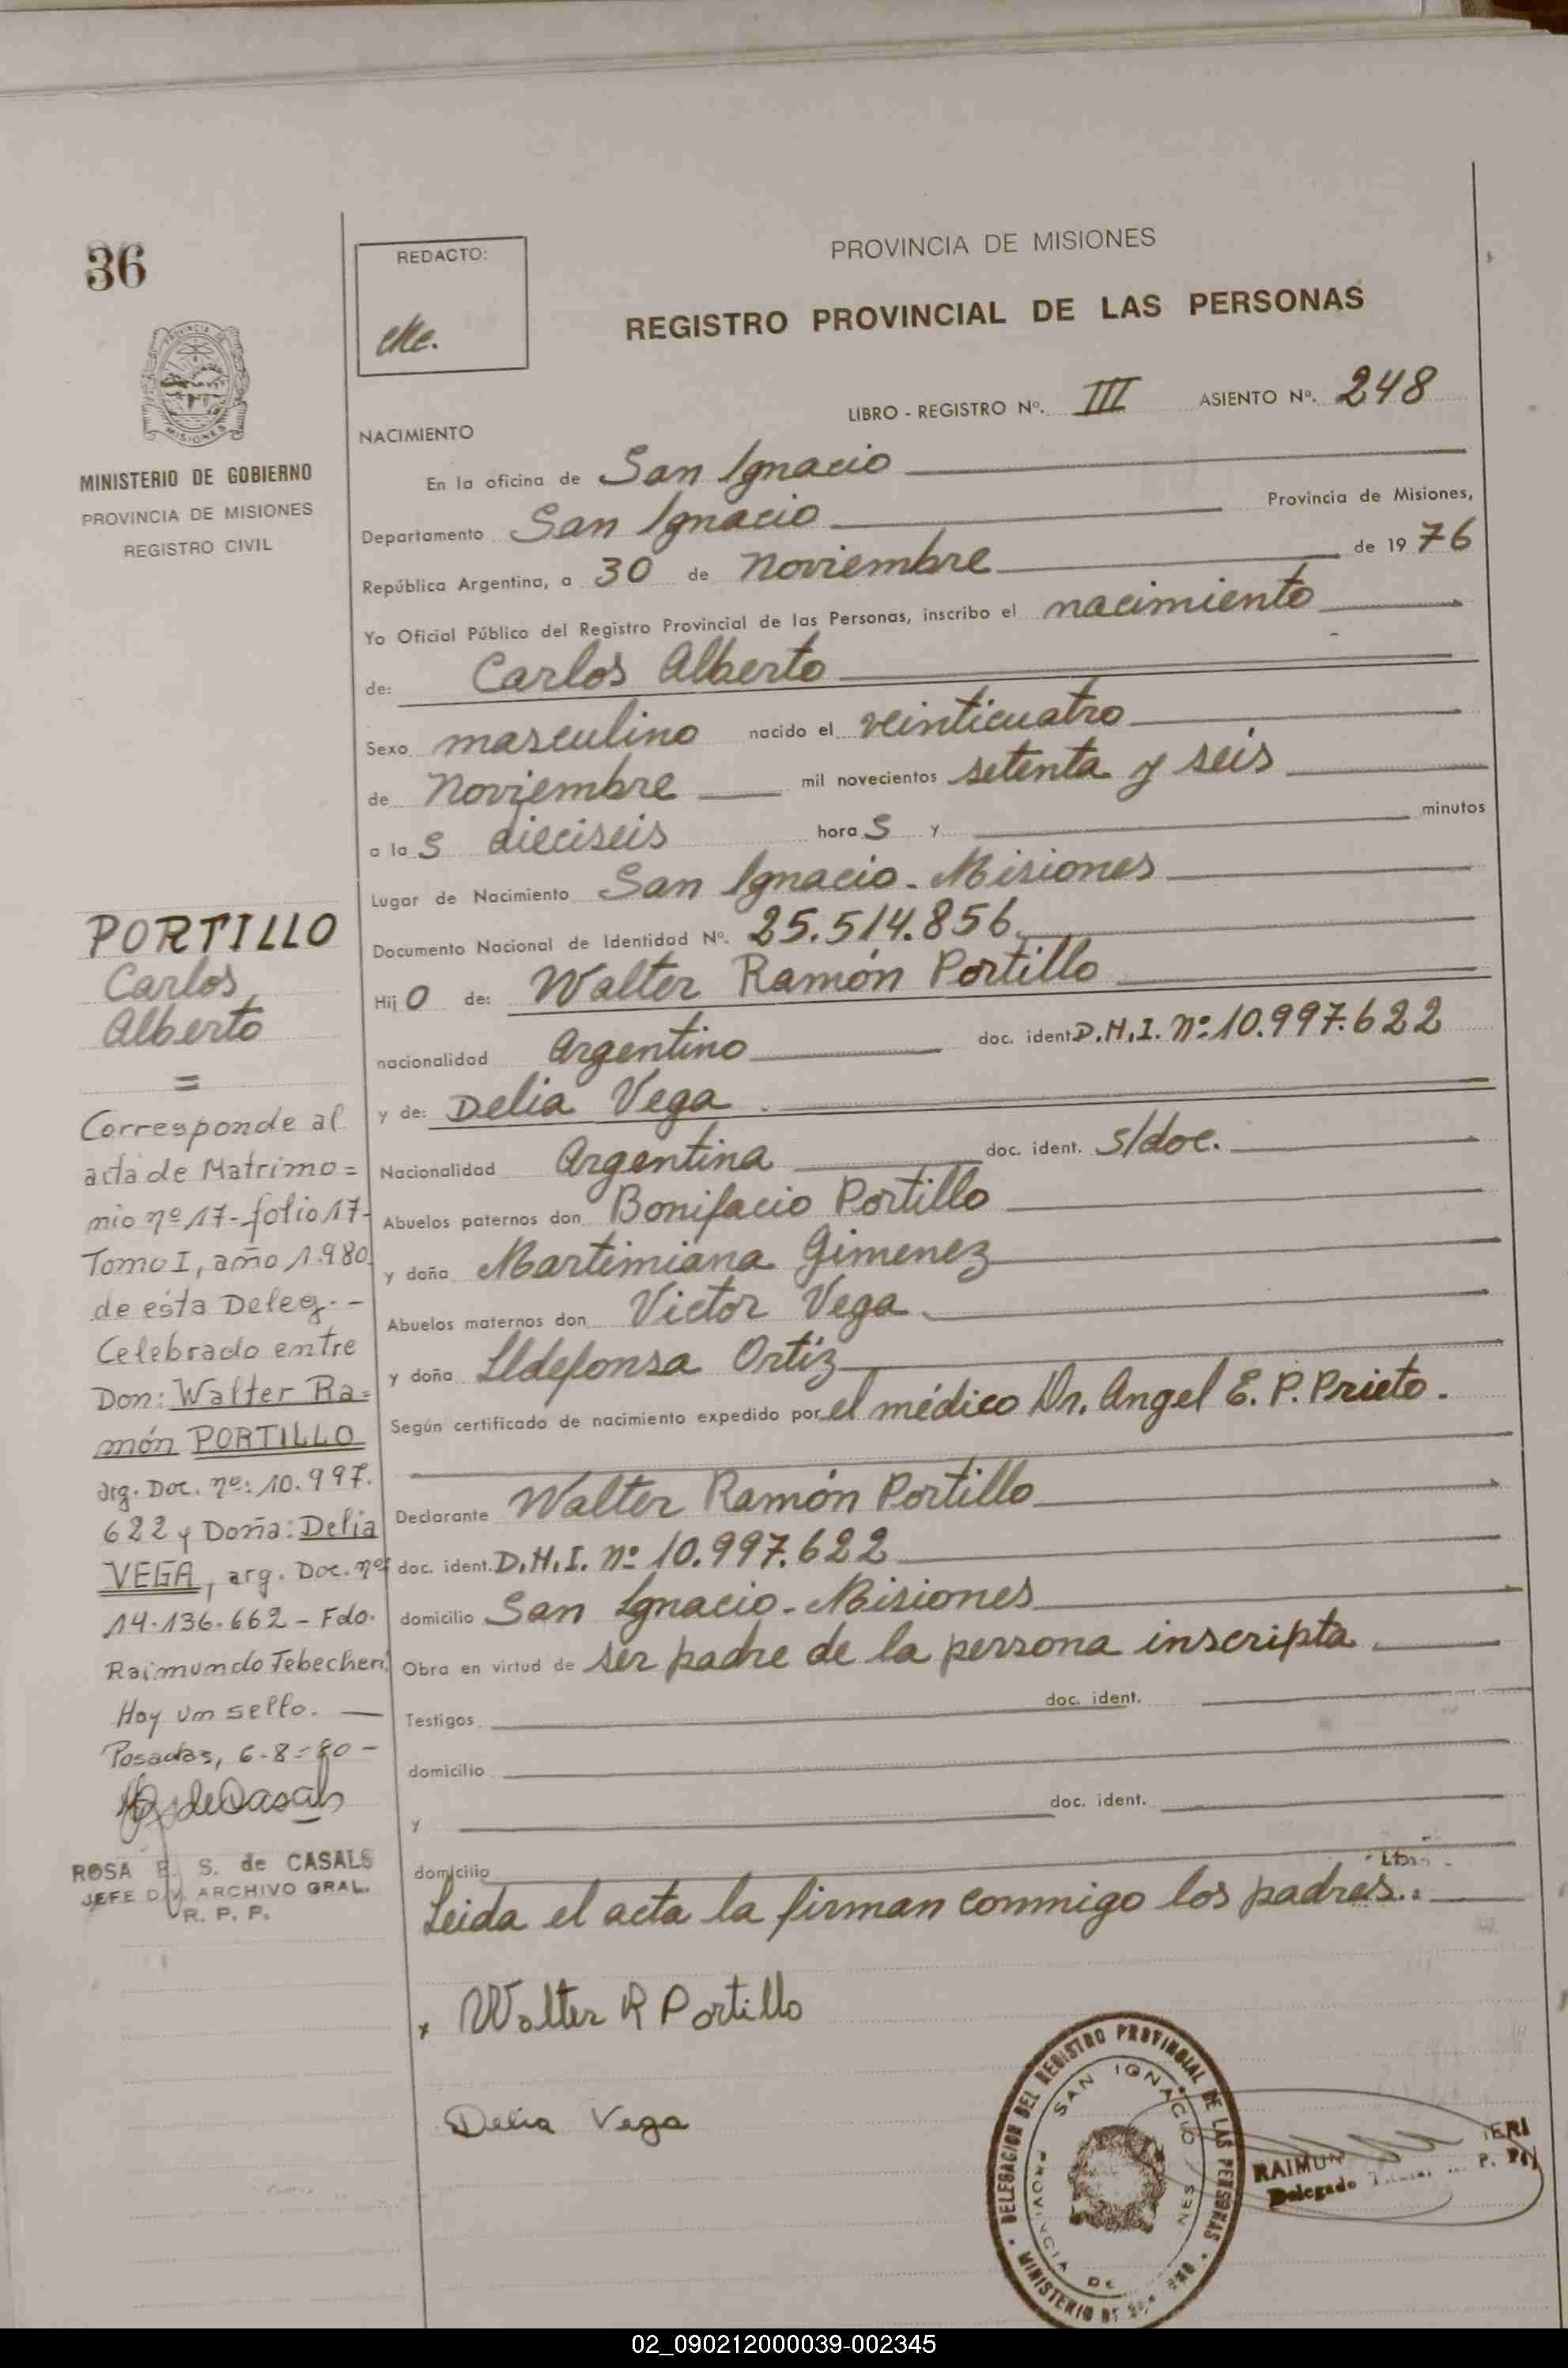 36
MINISTERIO DE GOBIERNO
PROVINCIA DE MISIONES
REGISTRO CIVIL
REDACTO:
PROVINCIA DE MISIONES
REGISTRO PROVINCIAL DE LAS PERSONAS
LIBRO - REGISTRO Nº. III ASIENTO Nº. 248
NACIMIENTO
En la oficina de San Ignacio
Departamento San Ignacio Provincia de Misiones,
República Argentina, a 30 de Noviembre de 1976
Yo Oficial Público del Registro Provincial de las Personas, inscribo el nacimiento
de: Carlos Alberto
Sexo masculino nacido el veinticuatro
de Noviembre mil novecientos setenta y seis
a las dieciseis horas y minutos
Lugar de Nacimiento San Ignacio - Misiones
Documento Nacional de Identidad Nº. 25.514.856
Hijo de: Walter Ramón Portillo
nacionalidad Argentino doc. ident. D.N.I. Nº 10.997.622
y de: Delia Vega
Nacionalidad Argentina doc. ident. s/doc.
Abuelos paternos don Bonifacio Portillo
y doña Martimiana Gimenez
Abuelos maternos don Victor Vega
y doña Ildefonsa Ortiz
Según certificado de nacimiento expedido por el médico Dr. Angel E. P. Prieto.
Declarante Walter Ramón Portillo
doc. ident. D.N.I. Nº 10.997.622
domicilio San Ignacio - Misiones
Obra en virtud de ser padre de la persona inscripta
Testigos doc. ident.
domicilio
y doc. ident.
domicilio
Leida el acta la firman conmigo los padres..
Walter R Portillo
Delia Vega
PORTILLO
Carlos
Alberto
=
Corresponde al
acta de Matrimo=
nio nº 17- folio 17-
Tomo I, año 1.980
de ésta Deleg. -
Celebrado entre
Don: Walter Ra=
món PORTILLO
arg. Doc. nº: 10.997.
622 y Doña: Delia
VEGA, arg. Doc. nº
14.136.662 - Fdo.
Raimundo Tebecheri
Hay un sello.
Posadas, 6-8-80 -
ROSA E. S. de CASALS
JEFE DIV. ARCHIVO GRAL.
R. P. P.
DELEGACION DEL REGISTRO PROVINCIAL DE LAS PERSONAS
SAN IGNACIO
PROVINCIA DE
MINISTERIO DE
RAIMUN ERI
Delegado
02_090212000039-002345